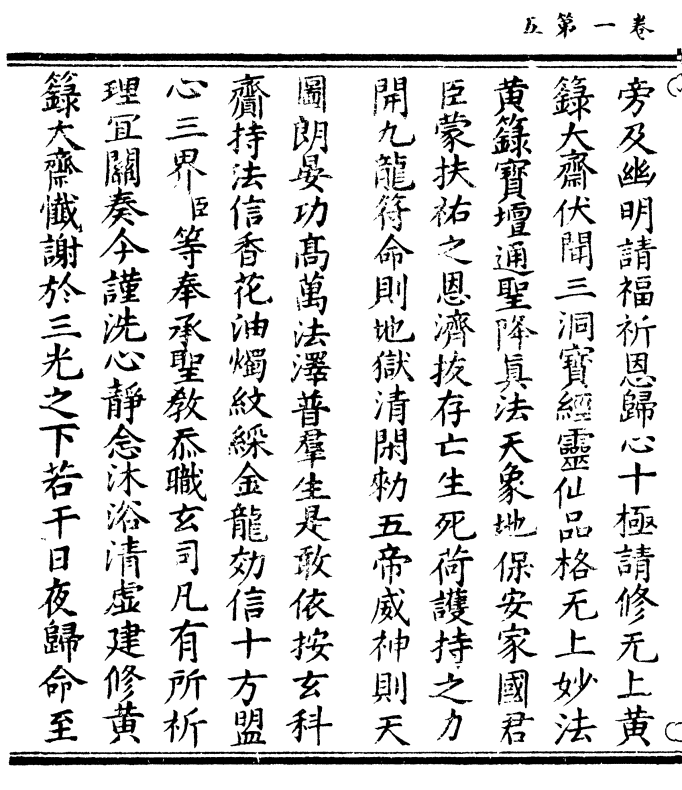 卷一第五
旁及幽明請福祈恩歸心十極請修无上黄
籙大齋伏聞三洞寶經靈仙品格无上妙法
黄籙寶壇通聖降眞法天象地保安家國君
臣蒙扶祐之恩濟拔存亡生死荷護持之力
開九龍符命則地獄清閑勑五帝威神則天
圖朗晏功髙萬法澤普羣生是敢依按玄科
齎持法信香花油燭紋綵金龍効信十方盟
心三界臣等奉承聖教忝職玄司凡有所祈
理冝關奏今謹洗心靜念沐浴清虚建修黄
籙大齋懺謝於三光之下若干日夜歸命至